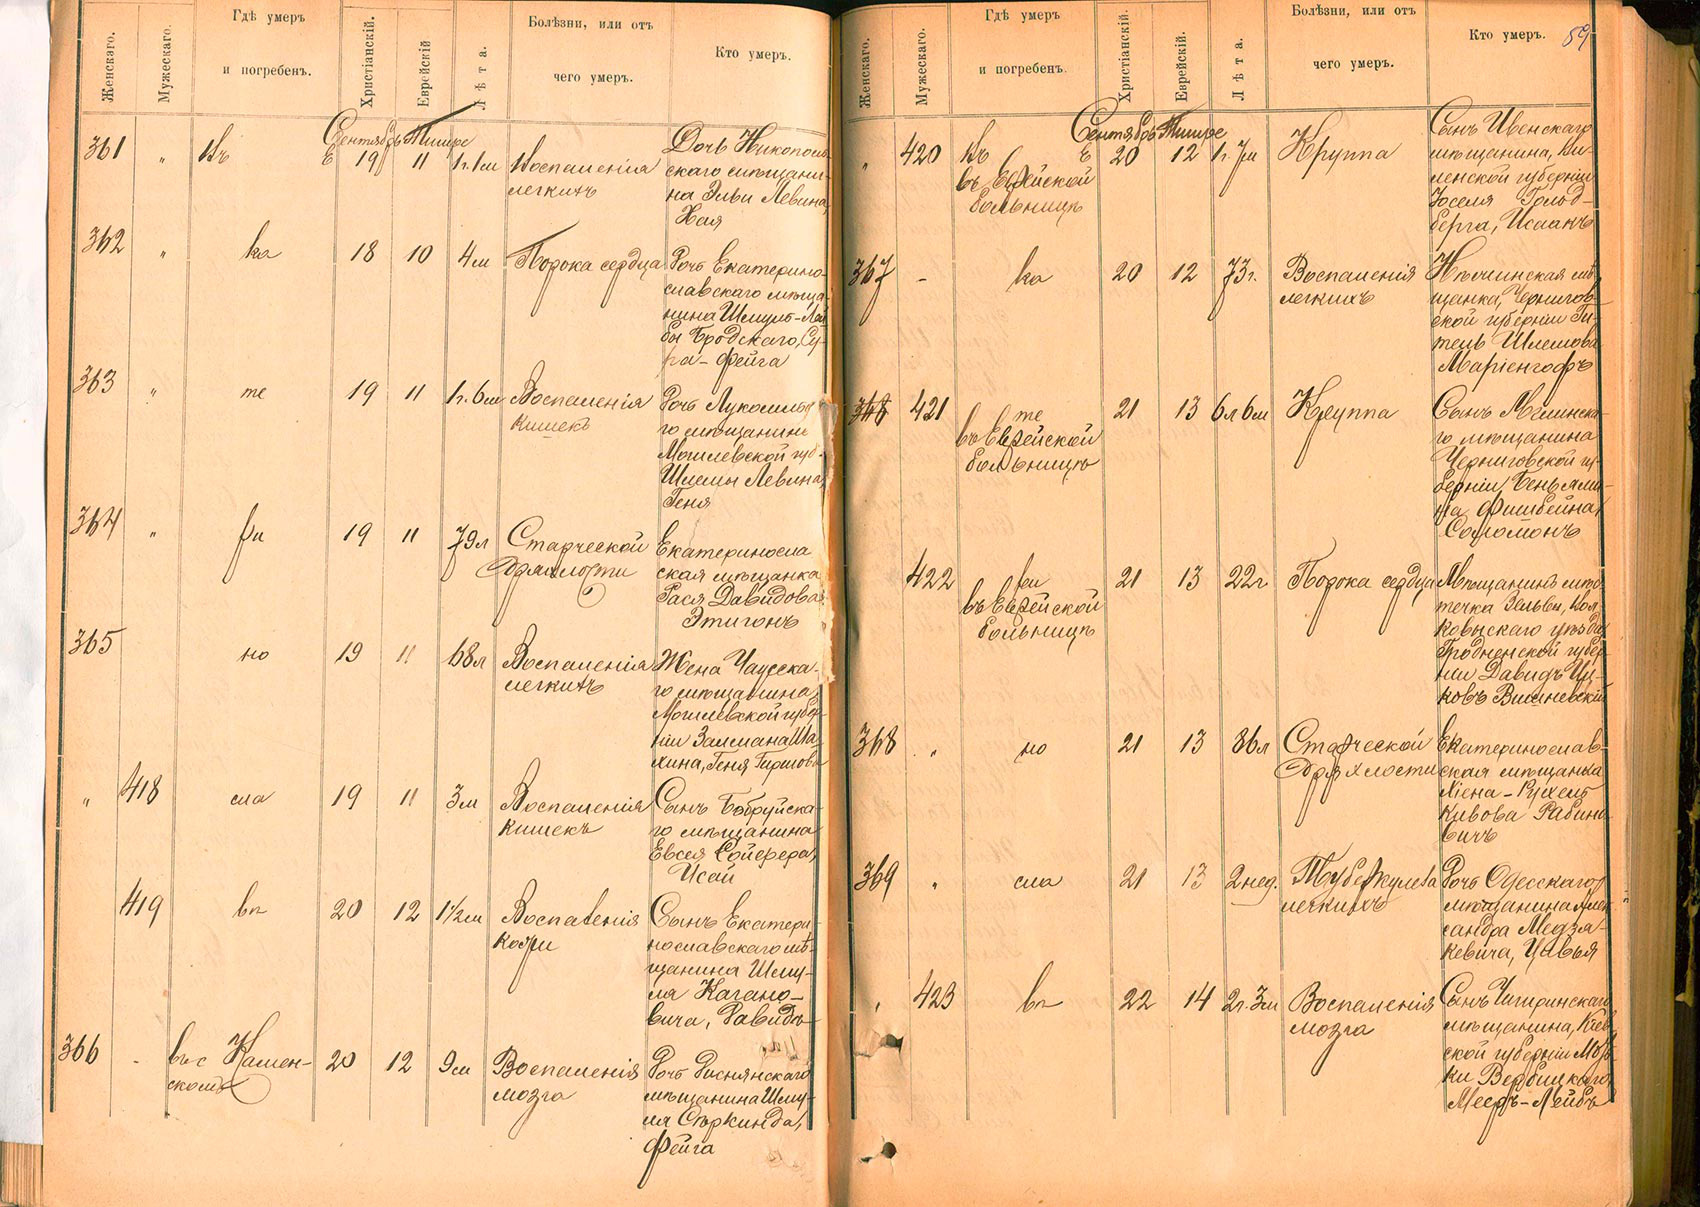 Женскаго.
Мужескаго.
Гдѣ умеръ
и погребенъ.
Христіанскій.
Еврейскій
Лѣта.
Болѣзни, или отъ
чего умеръ.
Кто умеръ.
Сентябрь Тишре
361 " Въ Е 19 11 1г. 1м Воспаленія
легкихъ
Дочь Никополь-
скаго мѣщани-
на Эльи Левина,
Хая
362 " ка 18 10 4м Порока сердца
Дочь Екатерино-
славскаго мѣща-
нина Шмуль-Лей-
бы Бродскаго, Су-
ра-Фейга
363 " те 19 11 1г. 6м Воспаленія
кишекъ
Дочь
го мѣщанина
Могилевской губ.
Шлемы Левина,
Геня
364 " ри 19 11 79л Старческой
дряхлости
Екатериносла
ская мѣщанка
Рася Давидова
Этигонъ
365 но 19 11 68л Воспаленія
легкихъ
Жена Чаусска-
го мѣщанина,
Могилевской губер-
ніи Залмана
Геня Гиршова
" 418 сла 19 11 3м Воспаленія
кишекъ
Сынъ Бобруйска-
го мѣщанина
Евсея Сойфера,
Исай
419 вѣ 20 12 1½м Воспаленія
кожи
Сынъ Екатери-
нославскаго мѣ-
щанина Шму-
ля Кагано-
вича, Давидъ
366 - въ с Камен-
скомъ
20 12 9м Воспаленія
мозга
Дочь Рясня́нскаго
мѣщанина Шму-
ля Сѣркинда,
Фейга
59
Женскаго.
Мужескаго.
Гдѣ умеръ
и погребенъ.
Христіанскій.
Еврейскій.
Лѣта.
Болѣзни, или отъ
чего умеръ.
Кто умеръ.
Сентябрь Тишре
" 420 Въ Е 20 12 1г. 7м Круппа
въ Еврейской
больницѣ
Сынъ Ивенскаго
мѣщанина, Ви-
ленской губерніи
Іоселя Гольд-
берга, Исаакъ
367 - ка 20 12 73г. Воспаленія
легкихъ
Нѣжинская мѣ-
щанка, Чернигов-
ской губерніи Ги-
тель Шлемова
Маріенгофъ
368 421 те 21 13 6л 6м Круппа
въ Еврейской
больницѣ
Сынъ Мглинска-
го мѣщанина
Черниговской гу-
берніи, Беньями-
на Фишбейна,
Соломонъ
422 ри 21 13 22г Порока сердца
въ Еврейской
больницѣ
Мѣщанинъ мѣс-
течка Зельвы, Вол-
ковыскаго уѣзда
Гродненской губер-
ніи Давидъ Иц-
ковъ Вишневскій
368 " но 21 13 86л Старческой
дряхлости
Екатеринослав-
ская мѣщанка
Хіена-Рухель
Кивова Рабино-
вичъ
369 " сла 21 13 2нед. Туберкулеза
легкихъ
Дочь Одесскаго
мѣщанина Алек-
сандра Медзя-
кевича, Цивья
" 423 вѣ 22 14 2г. 3м Воспаленія
мозга
Сынъ Чигиринскаго
мѣщанина, Кіев-
ской губерніиМорд-
ки Вербицкаго,
Мееръ-Лейбъ